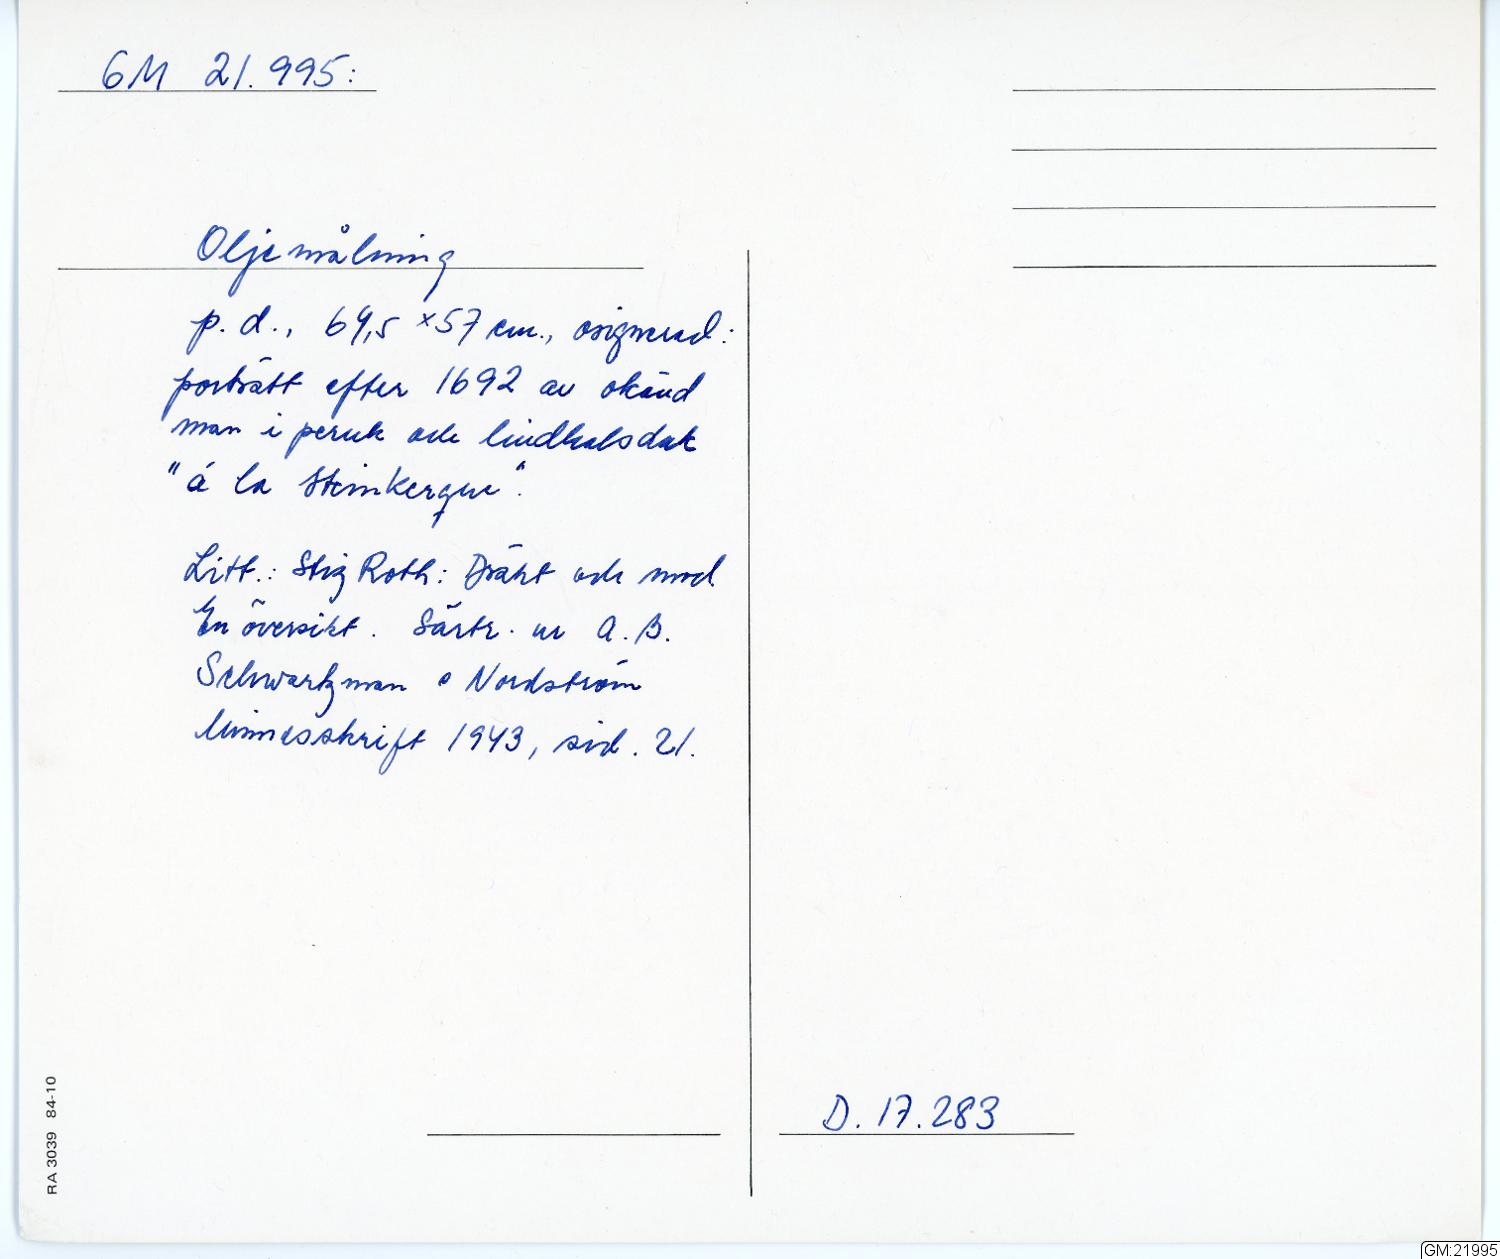 GM 21.995:
Oljemålning
p. d., 69,5 x 57 cm., osignerad:
porträtt efter 1692 av okänd
man i peruk och lindhalsduk
"á la Steinkerque".
Litt.: Stig Roth: Dräkt och mod
En översikt. Särtr. ur A. B.
Schwartzman o Nordström
Minnesskrift 1943, sid. 21.
D. 17.283
RA 3039 84-10
GM:21995